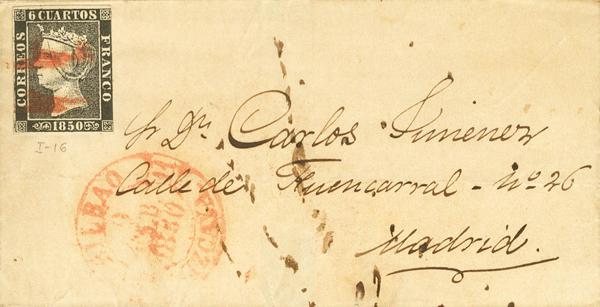 6 CUARTOS
CORREOS
FRANCO
1850
I-16
Sr Dn Carlos Jimenez
Calle de Fuencarral - No 26
Madrid.
BILBAO
1850